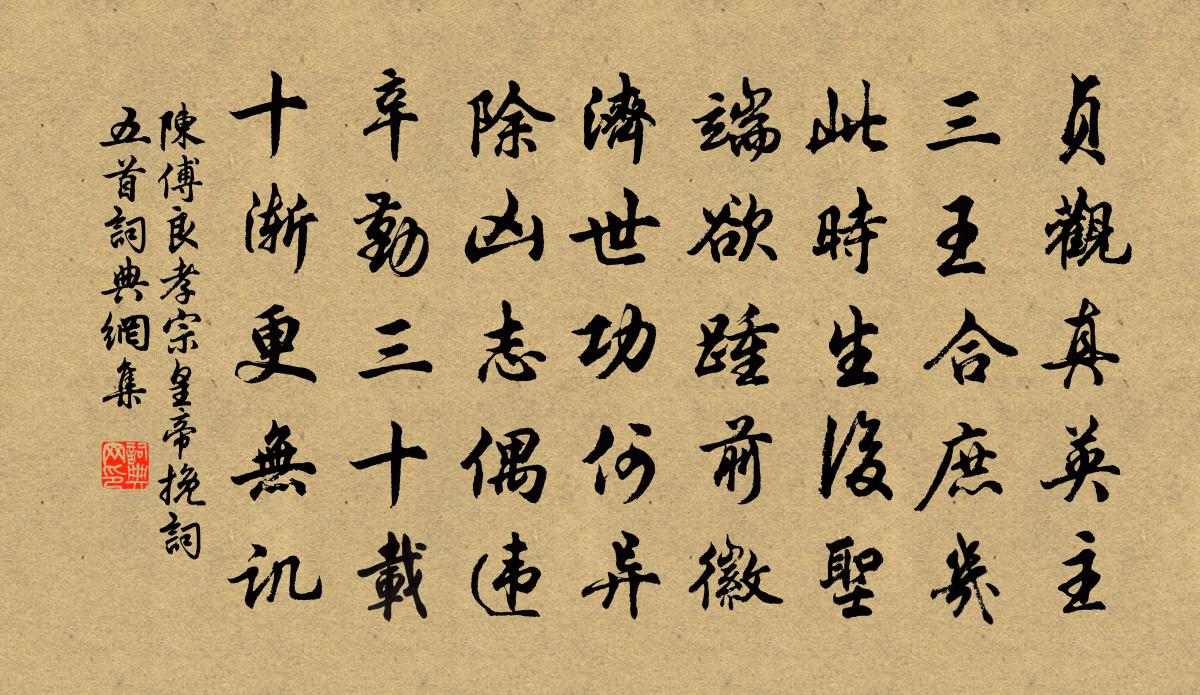 貞觀真英主
三王合庶幾
此時生後聖
端欲踵前徽
濟世功何异
除凶志偶违
辛勤三十載
十漸更無讥
陳傅良孝宗皇帝挽詞
五首詞典網集
詞典
网印